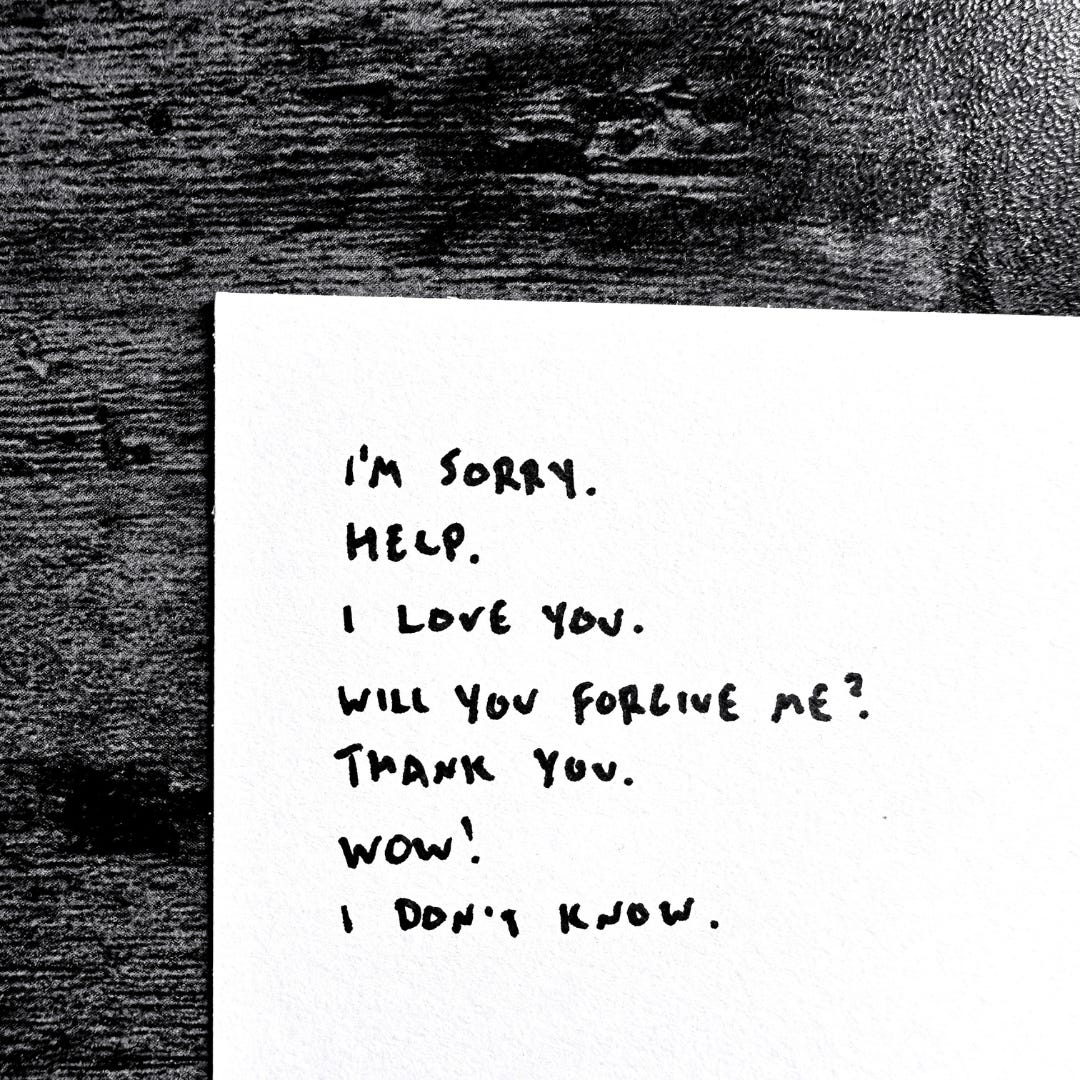 I'M SORRY.
HELP.
I LOVE YOU.
WILL YOU FORGIVE ME?
THANK YOU.
WOW!
I DON'T KNOW.